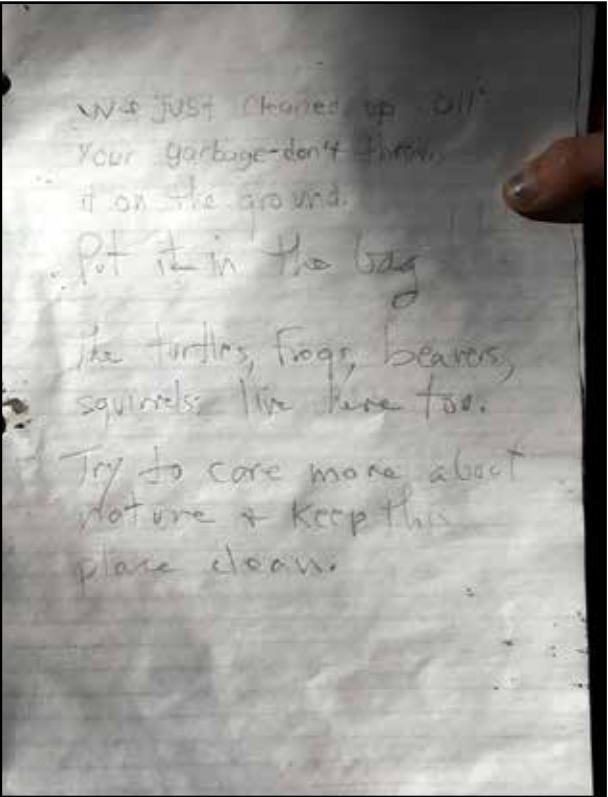 We just cleaned up all
your garbage-don't throw
it on the ground.
Put it in the bag
The turtles, frogs, beavers,
squirrels, live here too.
Try to care more about
nature + keep this
place clean.